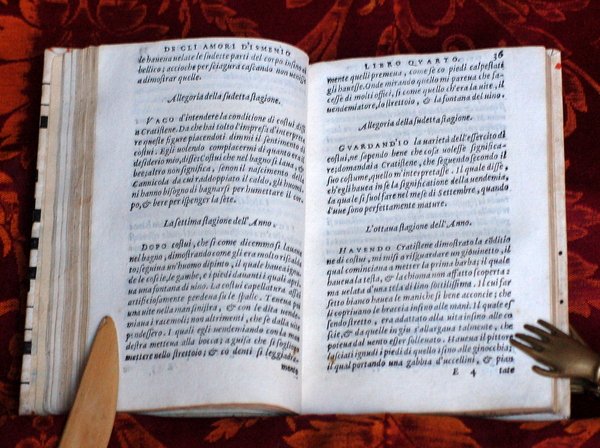 DE GLI AMORI D'ISMENIO
de haueua velate le sudette parti del corpo infino al
bellico; accioche per sciagura cascando non venisse
a dimostrar quelle.
Allegoria della sudetta stagione.
VAGO d'intendere la conditione di costui dissi
a Cratistene. Da che hai tolto l'impresa d'interpreta
re queste figure piacendoti dimmi il sentimento di
costui. Egli uolendo compiacermi di quanto era il
desiderio mio, disse: Costui che nel bagno si laua, &
bee; altro non significa, senon il nascimento della
Canicola da cui raddoppiato il caldo, gli huomi-
ni hanno bisogno di bagnarsi per humettare il cor-
po, & bere per ispenger la sete.
La settima stagione dell'Anno.
DOPO costui, che si come dicemmo si lauaua
nel bagno, dimostrando come gli era molto risecca
to; seguiua un'huomo dipinto, il qual haueua ignu-
de le coscie, le gambe, e i piedi dauanti a quali apri
ua una fontana di uino. La costui capellatura assai
artificiosamente pendeua su le spalle. Teneua poi
una uite nella man sinistra, & con le dita uendem-
miaua i racemoli non altrimenti, che se dalla uite
pendessero. I quali egli uendemiando con la man
destra metteua alla bocca; a guisa che si sogliono
mettere nello strettoio; & co denti si leggiadra-
mente
LIBRO QVARTO. 36
mente quelli premeua, come se co piedi calpestati
gli hauesse. Onde mirando quello mi pareua che fa-
cesse di molti offici, si come quello ch'era la uite, il
uendemiatore, lo strettoio, & la fontana del uino.
Allegoria della sudetta stagione.
GVARDAND'IO la uarietà dell'essercito di
costui, ne sapendo bene che cosa uolesse significa-
re; domandai a Cratistene, che seguendo secondo il
suo costume, quello m'interpretasse. Il quale disse,
ch'egli haueua in se la significatione della uendemia,
la quale si suol fare nel mese di Settembre, quando
l'uue sono perfettamente mature.
L'ottaua stagione dell'Anno.
HAVENDO Cratistene dimostrato la cõditio
ne di costui, mi misi a risguardare un giouinetto, il
qual cominciaua a metter la prima barba; il quale
haueua la testa, & la chioma non affatto scoperta;
ma uelata d'una tela di lino sottilissima. Il cui far
setto bianco haueua le maniche si bene acconcie; che
li copriuano le braccia infino alle mani. Il quale es
sendo stretto, era adattato alla uita infino alle co-
scie, & da quelle in giu s'allargaua talmente, che
poteua dal uento esser solleuato. Haueua il pittor
lasciati ignudi i piedi di quello; sino alle ginocchia;
il qual portando una gabbia d'uccellini, & pian
E 4 tate